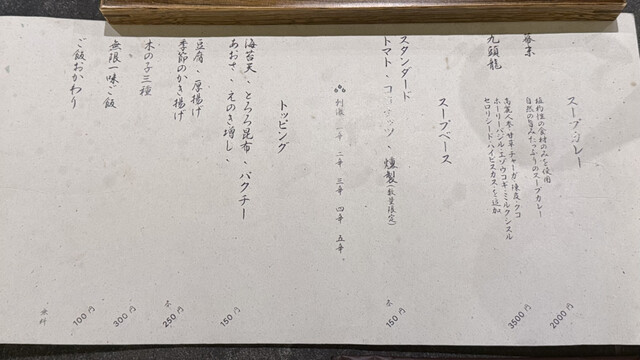 スープカレー
基本
植物性の食材のみを使用
自然の旨みたっぷりのスープカレー
2000円
九頭龍
高麗人参・甘草・チャーガ・陳皮・クコ
ホーリーバジル・エゾウコギ・ミルクシスル
セロリシード・ハイビスカスを追加
3500円
スープベース
スタンダード
トマト、ココナッツ、燻製(数量限定)
各150円
刺激 一辛 二辛 三辛 四辛 五辛
トッピング
海苔天、とろろ昆布、パクチー
あおさ、えのき増し、
150円
豆腐、厚揚げ
季節のかき揚げ
各250円
木の子三種
300円
無限一味ご飯
100円
ご飯おかわり
無料